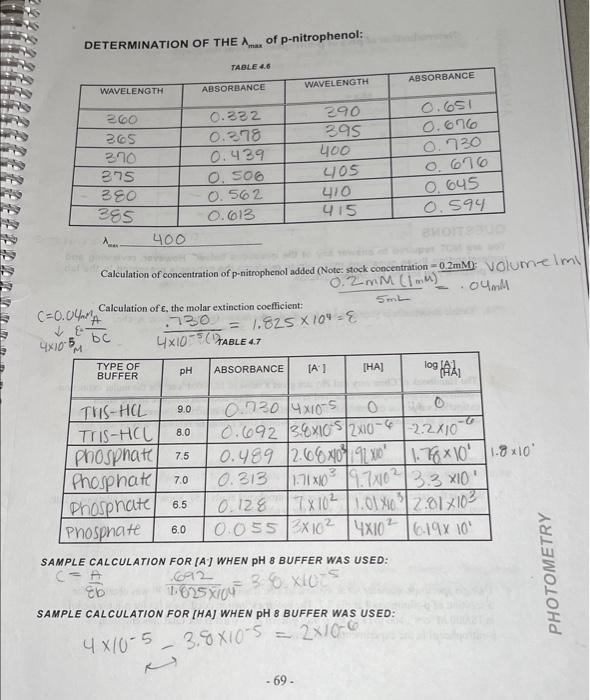 DETERMINATION OF THE λmax of p-nitrophenol:
TABLE 4.6
WAVELENGTH ABSORBANCE WAVELENGTH ABSORBANCE
360 0.332 390 0.651
365 0.378 395 0.676
370 0.439 400 0.730
375 0.506 405 0.676
380 0.562 410 0.645
385 0.613 415 0.594
λmax 400
Calculation of concentration of p-nitrophenol added (Note: stock concentration = 0.2mM): volume 1ml
0.2mM (1mL) = .04mM
5mL
C=0.04mM
Calculation of ε, the molar extinction coefficient:
↓ ε= A
4x10-5 M bc
.730 = 1.825 x 10⁴ = ε
4x10-5(1)
TABLE 4.7
TYPE OF BUFFER pH ABSORBANCE [A-] [HA] log [A-] [HA]
Tris-HCL 9.0 0.730 4x10-5 0 0
Tris-HCL 8.0 0.692 3.8x10-5 2x10-6 -2.2x10-6
Phosphate 7.5 0.489 1.78x10¹ 1.8x10¹
Phosphate 7.0 0.313 1.71x10³ 9.7x10² 3.3x10¹
Phosphate 6.5 0.128 7x10² 1.01x10³ 2.01x10³
Phosphate 6.0 0.055 3x10² 4x10² 6.19x10¹
SAMPLE CALCULATION FOR [A-] WHEN pH 8 BUFFER WAS USED:
C = A .692 = 3.8 x10-5
εb 1.825x104
SAMPLE CALCULATION FOR [HA] WHEN pH 8 BUFFER WAS USED:
4x10-5 - 3.8x10-5 = 2x10-6
PHOTOMETRY
- 69 -